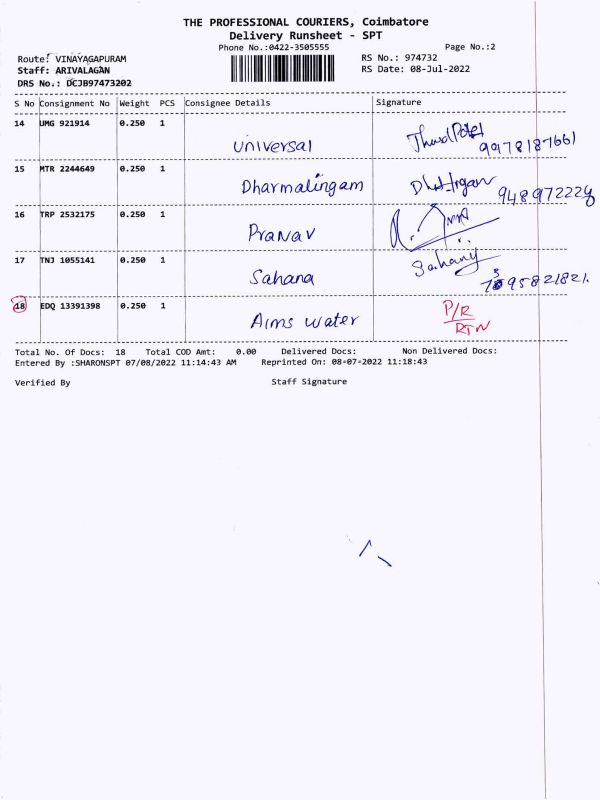 THE PROFESSIONAL COURIERS, Coimbatore
Delivery Runsheet - SPT
Phone No.:0422-3505555 Page No.:2
Route: VINAYAGAPURAM RS No.: 974732
Staff: ARIVALAGAN RS Date: 08-Jul-2022
DRS No.: DCJB97473202
S No Consignment No Weight PCS Consignee Details Signature
14 UMG 921914 0.250 1
universal 9978187661
15 MTR 2244649 0.250 1
Dharmalingam
16 TRP 2532175 0.250 1
Pranav
17 TNJ 1055141 0.250 1 Sahany
Sahana
18 EDQ 13391398 0.250 1 P/R
Aims water RTN
Total No. Of Docs: 18 Total COD Amt: 0.00 Delivered Docs: Non Delivered Docs:
Entered By :SHARONSPT 07/08/2022 11:14:43 AM Reprinted On: 08-07-2022 11:18:43
Verified By Staff Signature